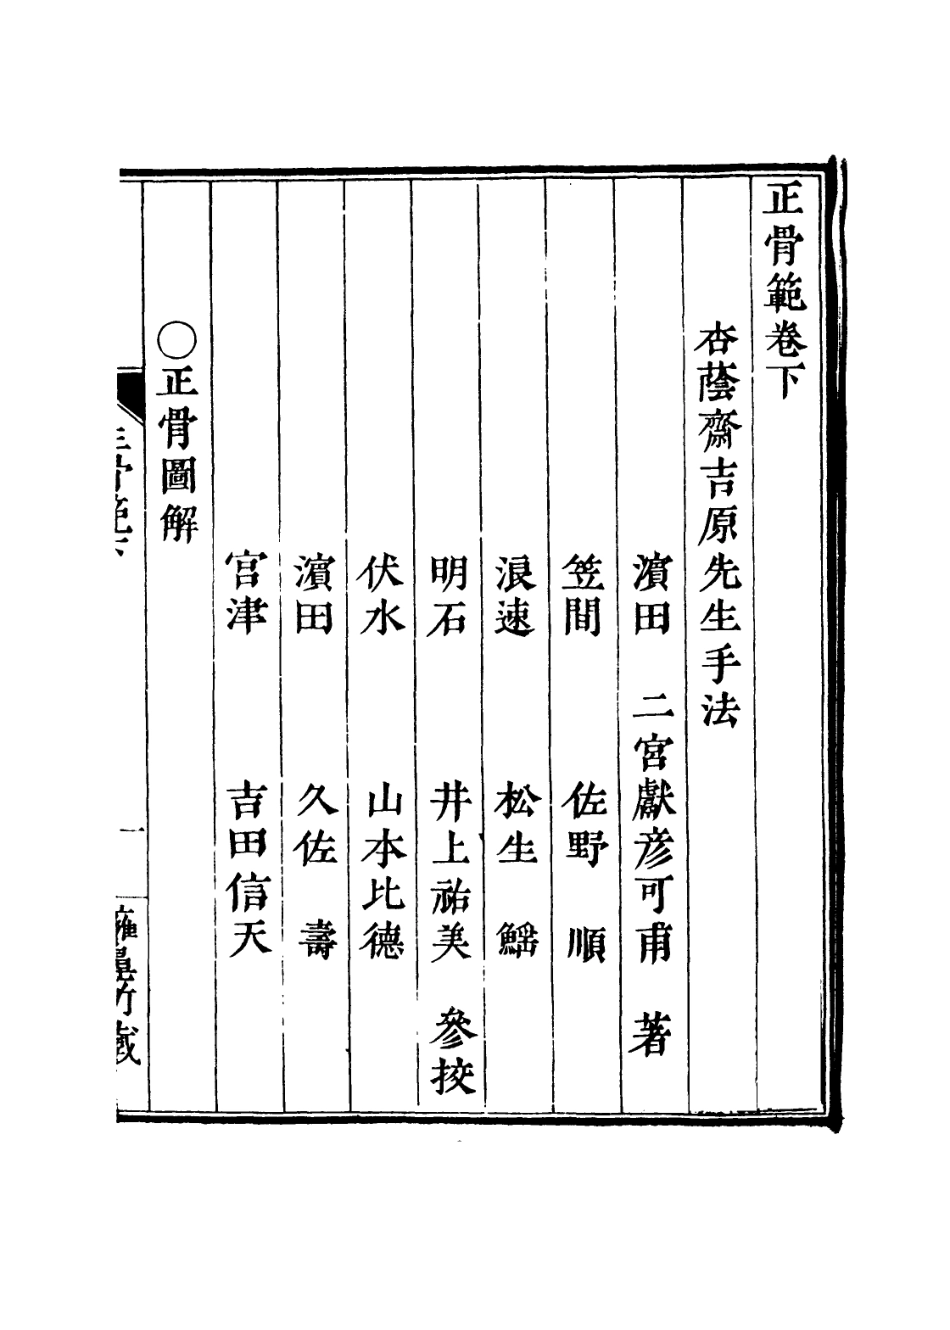 正骨範卷下
杏蔭齋吉原先生手法
濱田　二宮獻彦可甫　著
笠間　佐野　順
浪速　松生　鰩
明石　井上祐美　參挍
伏水　山本比德
濱田　久佐　壽
宮津　吉田信天
○正骨圖解
正骨範下
一